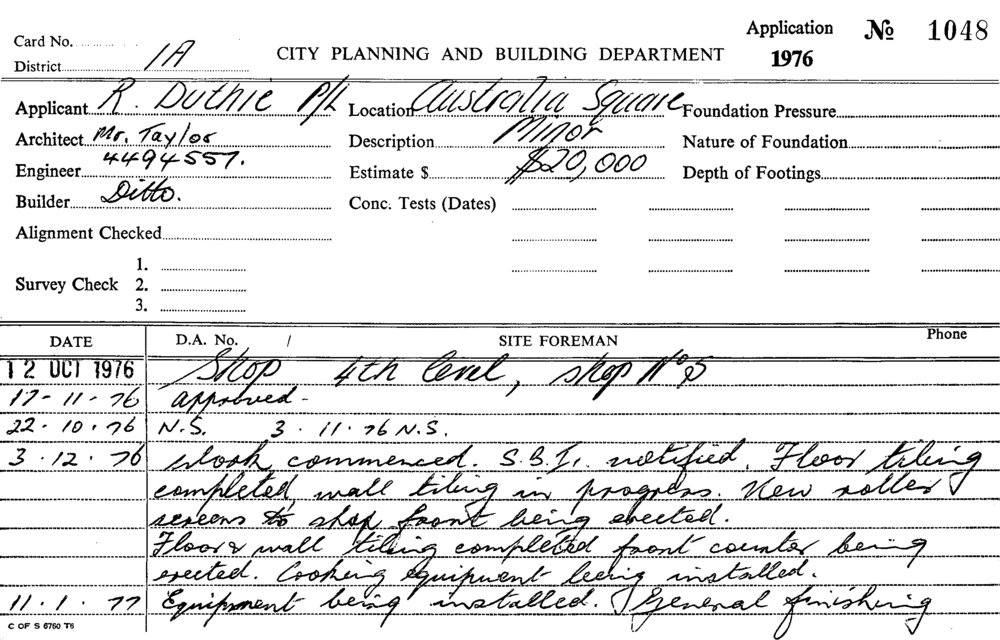 Application No 1048
Card No.
District 1A
CITY PLANNING AND BUILDING DEPARTMENT
1976
Applicant R. Duthie P/L Location Australia Square Foundation Pressure
Architect Mr. Taylor Description Minor Nature of Foundation
Engineer 4494557. Estimate $ $20,000 Depth of Footings
Builder Ditto. Conc. Tests (Dates)
Alignment Checked
Survey Check 1.
2.
3.
DATE D.A. No. / SITE FOREMAN Phone
12 OCT 1976 Shop 4th level, shop No 5
17-11-76 approved-
22.10.76 N.S. 3.11.76 N.S.
3.12.76 Work commenced. S.B.I. notified. Floor tiling
completed, wall tiling in progress. New roller
screens to shop front being erected.
Floor & wall tiling completed front counter being
erected. Cooking equipment being installed.
11.1.77 Equipment being installed. General finishing
C OF S 6750 T6